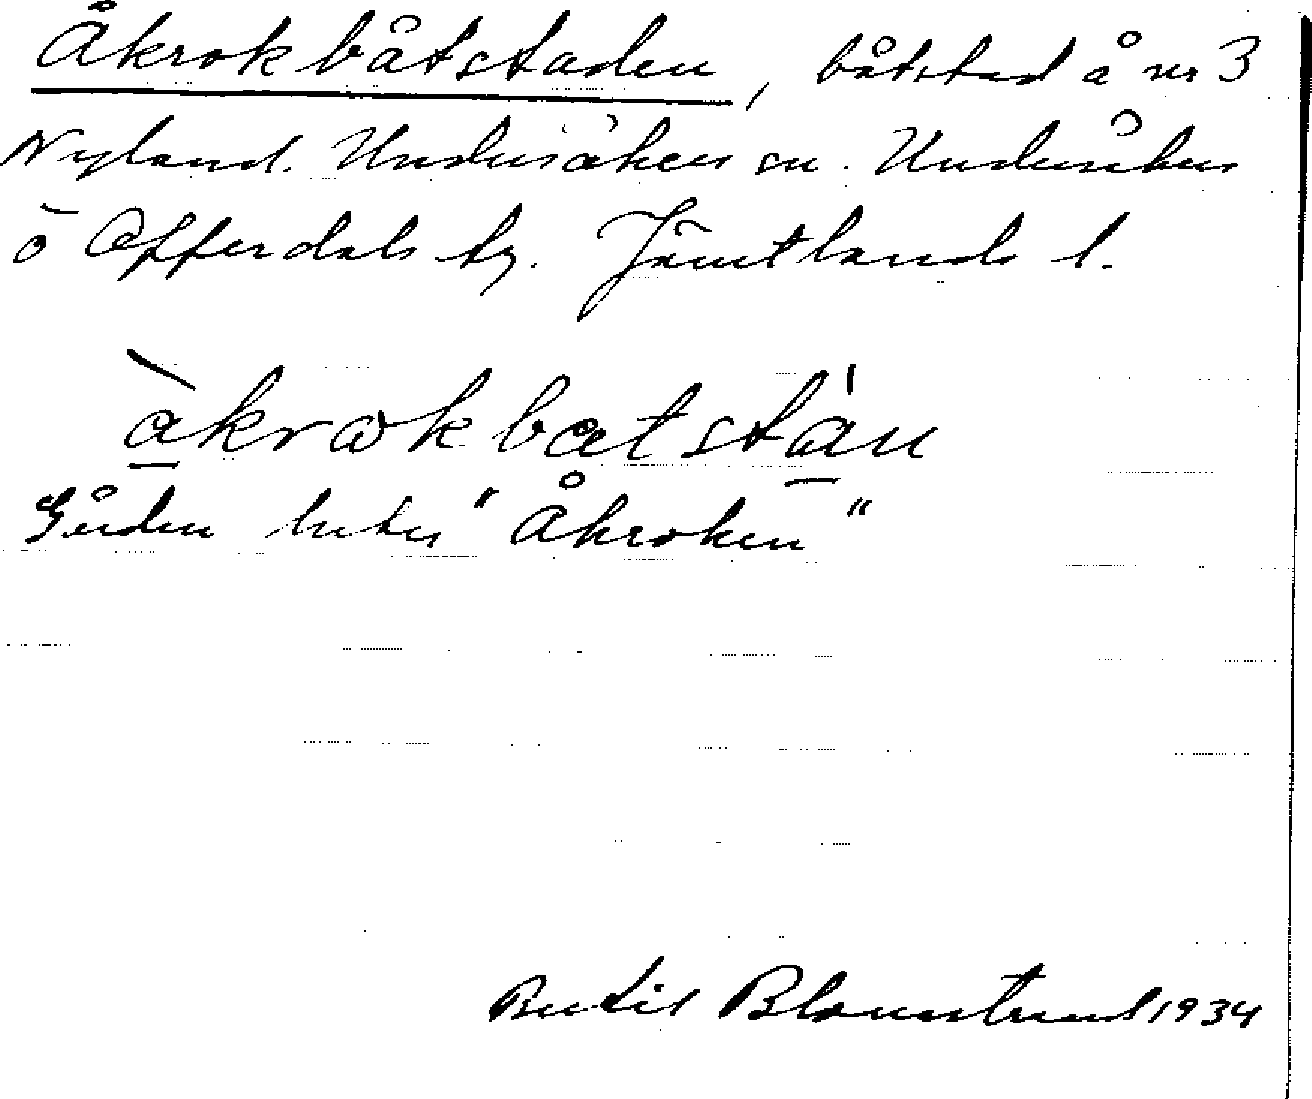 Åkrokbåtstaden, båtstad å nr 3
Nyland. Undersåkers sn. Undersåkers
o Offerdals tg. Jämtlands l.
åkrokbatstán
Gården heter "Åkroken"
Bertil Blomstrand 1934